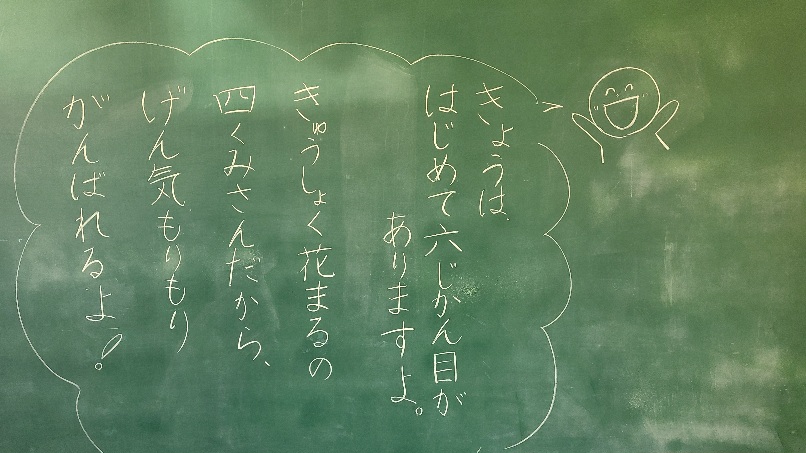 きょうは、
はじめて六じかん目が
ありますよ。
きゅうしょく花まるの
四くみさんだから、
げん気もりもり
がんばれるよう。